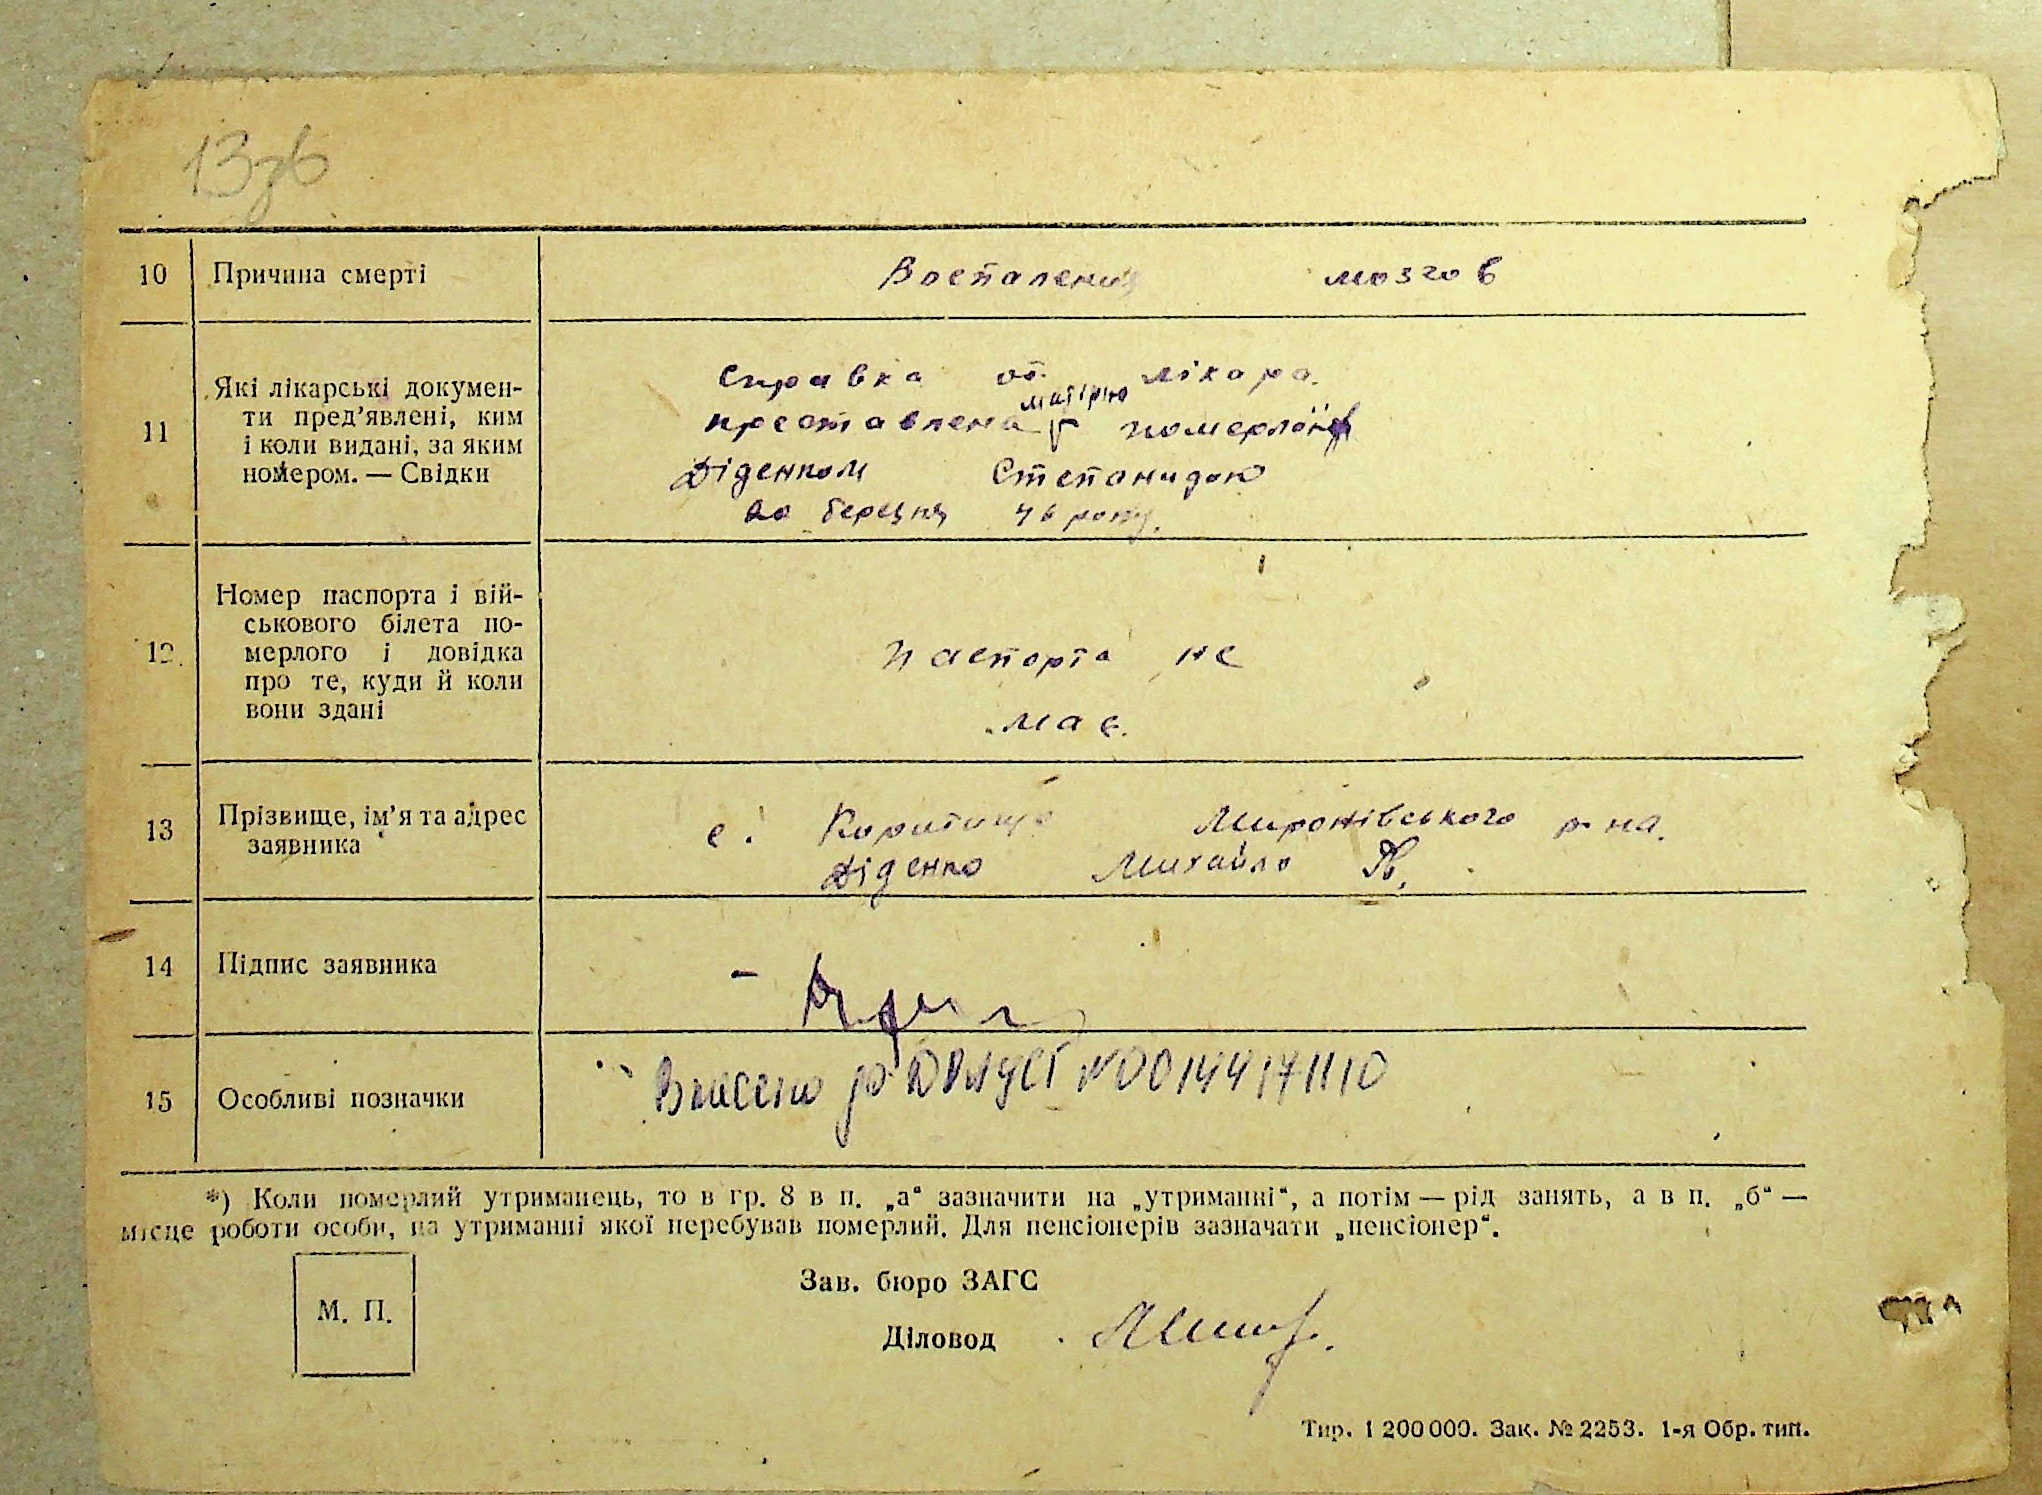 13зв
10 Причина смерті Воспаления мозгов
11 Які лікарські докумен-
ти пред’явлені, ким
і коли видані, за яким
номером. — Свідки
Справка от лікара.
матірю
преставлена померлої
Діденком Степанидою
20 березня 46 року.
12. Номер паспорта і вій-
ськового білета по-
мерлого і довідка
про те, куди й коли
вони здані
паспорта не
має.
13 Прізвище, ім’я та адрес
заявника
с. Коритище Миронівського р-на.
Діденко Михайло
14 Підпис заявника
15 Особливі позначки
Внесено до ДРАЦСГ №00144171110
*) Коли померлий утриманець, то в гр. 8 в п. „а“ зазначити на „утриманні“, а потім — рід занять, а в п. „б“ —
місце роботи особи, на утриманні якої перебував померлий. Для пенсіонерів зазначати „пенсіонер“.
М. П.
Зав. бюро ЗАГС
Діловод
Тир. 1 200 000. Зак. № 2253. 1-я Обр. тип.